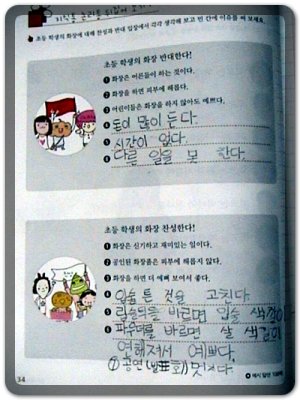 초등 학생의 화장에 대해 찬성과 반대 입장에서 각각 생각해 보고 빈 칸에 이유를 써 보세요.
초등 학생의 화장 반대한다!
❶ 화장은 어른들이 하는 것이다.
❷ 화장을 하면 피부에 해롭다.
❸ 어린이들은 화장을 하지 않아도 예쁘다.
❹ 돈이 많이 든다.
❺ 시간이 없다.
❻ 다른 일을 못 한다.
초등 학생의 화장 찬성한다!
❶ 화장은 신기하고 재미있는 일이다.
❷ 공인된 화장품은 피부에 해롭지 않다.
❸ 화장을 하면 더 예뻐 보여서 좋다.
❹ 입술 튼 것을 고친다.
❺ 립스틱을 바르면 입술 색깔이
❻ 파우더를 바르면 살 색깔이
연해져서 예쁘다.
⑦ 공연(발표회) 멋지다
34
예시 답안 138쪽